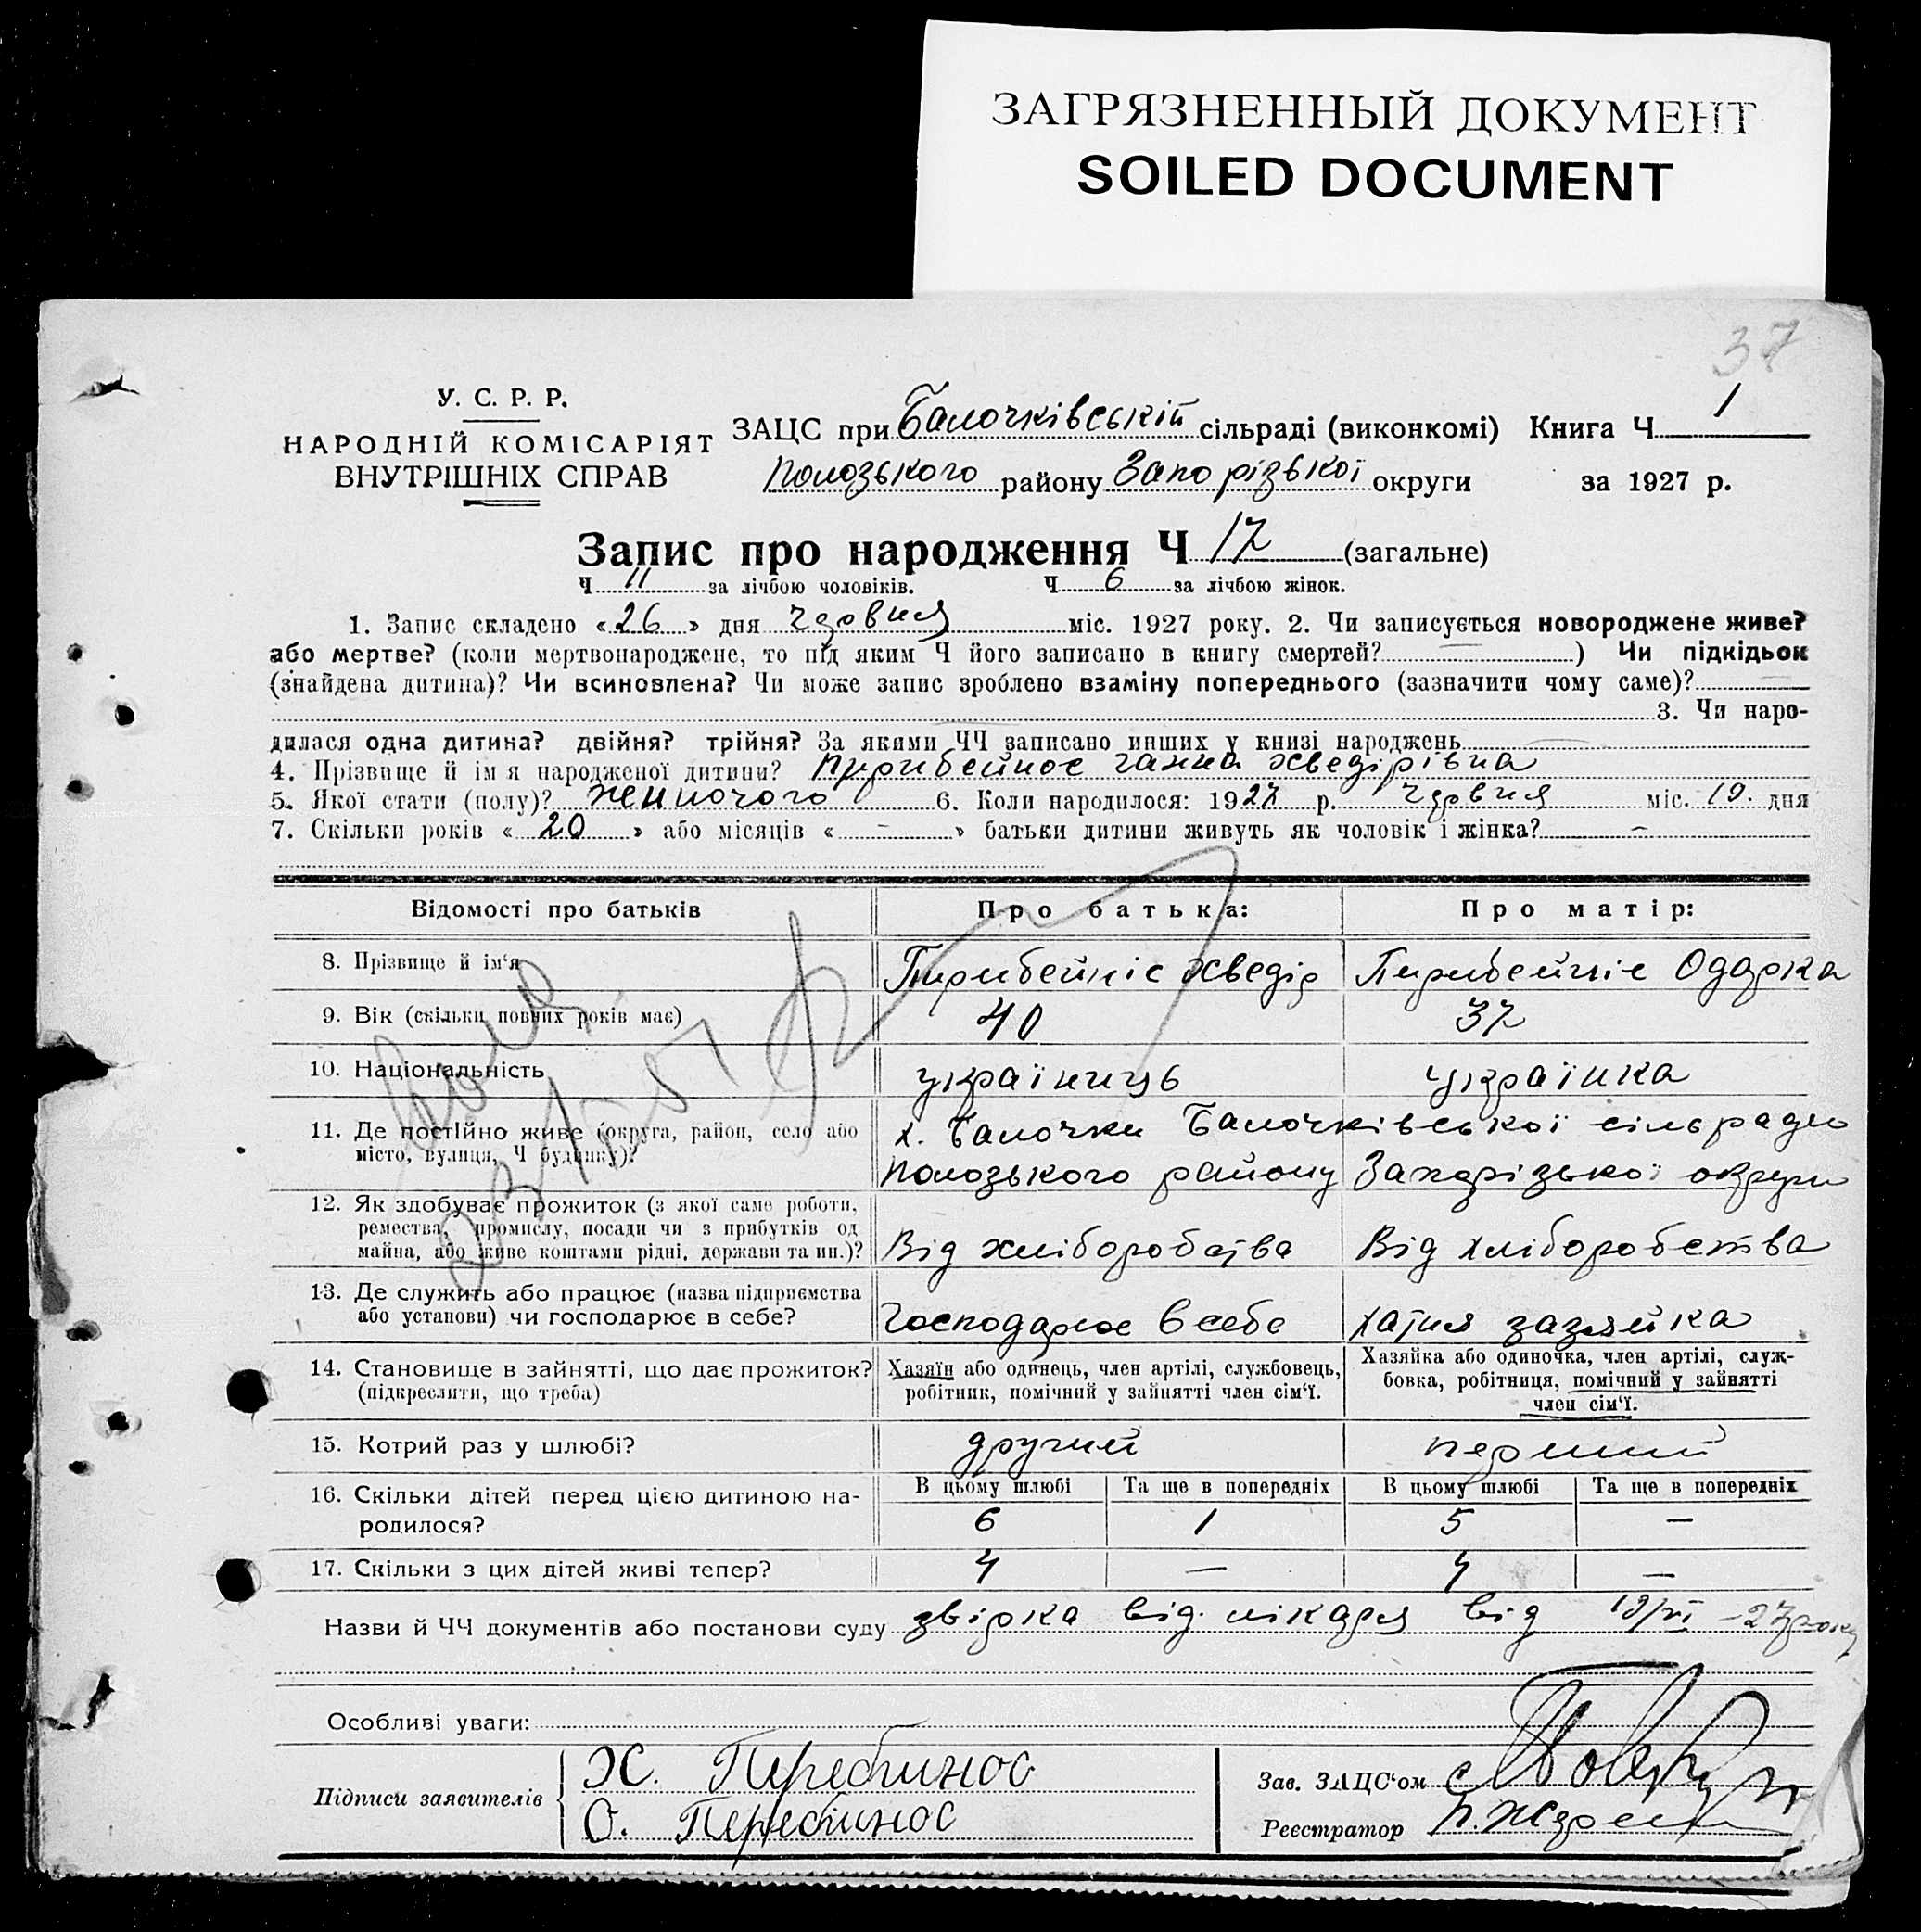 ЗАГРЯЗНЕННЫЙ ДОКУМЕНТ
SOILED DOCUMENT
37
У. С. Р. Р.
НАРОДНІЙ КОМІСАРІЯТ
ВНУТРІШНІХ СПРАВ
ЗАЦС при Балочківській сільраді (виконкомі) Книга Ч 1
Полозького району Запорізької округи за 1927 р.
Запис про народження Ч 17 (загальне)
Ч 11 за лічбою чоловіків. Ч 6 за лічбою жінок.
1. Запис складено «26» дня червня міс. 1927 року. 2. Чи записується новороджене живе?
або мертве? (коли мертвонароджене, то під яким Ч його записано в книгу смертей? —) Чи підкідьок
(знайдена дитина)? Чи всиновлена? Чи може запис зроблено взаміну попереднього (зазначити чому саме)? —
3. Чи наро-
дилася одна дитина? двійня? трійня? За якими ЧЧ записано инших у книзі народжень —
4. Прізвище й ім'я народженої дитини? Пирибейнос Ганна Хведірівна
5. Якої стати (полу)? жиночого 6. Коли народилося: 1927 р. червня міс. 19. дня
7. Скільки років «20» або місяців « - » батьки дитини живуть як чоловік і жінка? –
Відомості про батьків Про батька: Про матір:
8. Прізвище й ім'я Пирибейніс Хведір Пирибейніс Одарка
9. Вік (скільки повних років має) 40 37
10. Національність українець українка
11. Де постійно живе (округа, район, село або х. Балочки Балочківської сільради
місто, вулиця, Ч будинку)? Полозького району Запорізької округи
12. Як здобуває прожиток (з якої саме роботи,
ремества, промислу, посади чи з прибутків од
майна, або живе коштами рідні, держави та ин.)? Від хліборобства Від хліборобства
13. Де служить або працює (назва підприємства
або установи) чи господарює в себе? Господарює в себе хатня хазяйка
14. Становище в зайнятті, що дає прожиток? Хазяїн або одинець, член артілі, службовець, Хазяйка або одиночка, член артілі, служ-
(підкреслити, що треба) робітник, помічний у зайнятті член сім'ї. бовка, робітниця, помічний у зайнятті
член сім'ї.
15. Котрий раз у шлюбі? другий перший
16. Скільки дітей перед цією дитиною на- В цьому шлюбі Та ще в попередніх В цьому шлюбі Та ще в попередніх
родилося? 6 1 5 —
17. Скільки з цих дітей живі тепер? 4 — 4 —
Назви й ЧЧ документів або постанови суду від. лікаря від 19/VI –27 року
Особливі уваги:
Підписи заявителів
Х. Перебинос
О. Перебинос
Зав. ЗАЦС'ом
Реєстратор